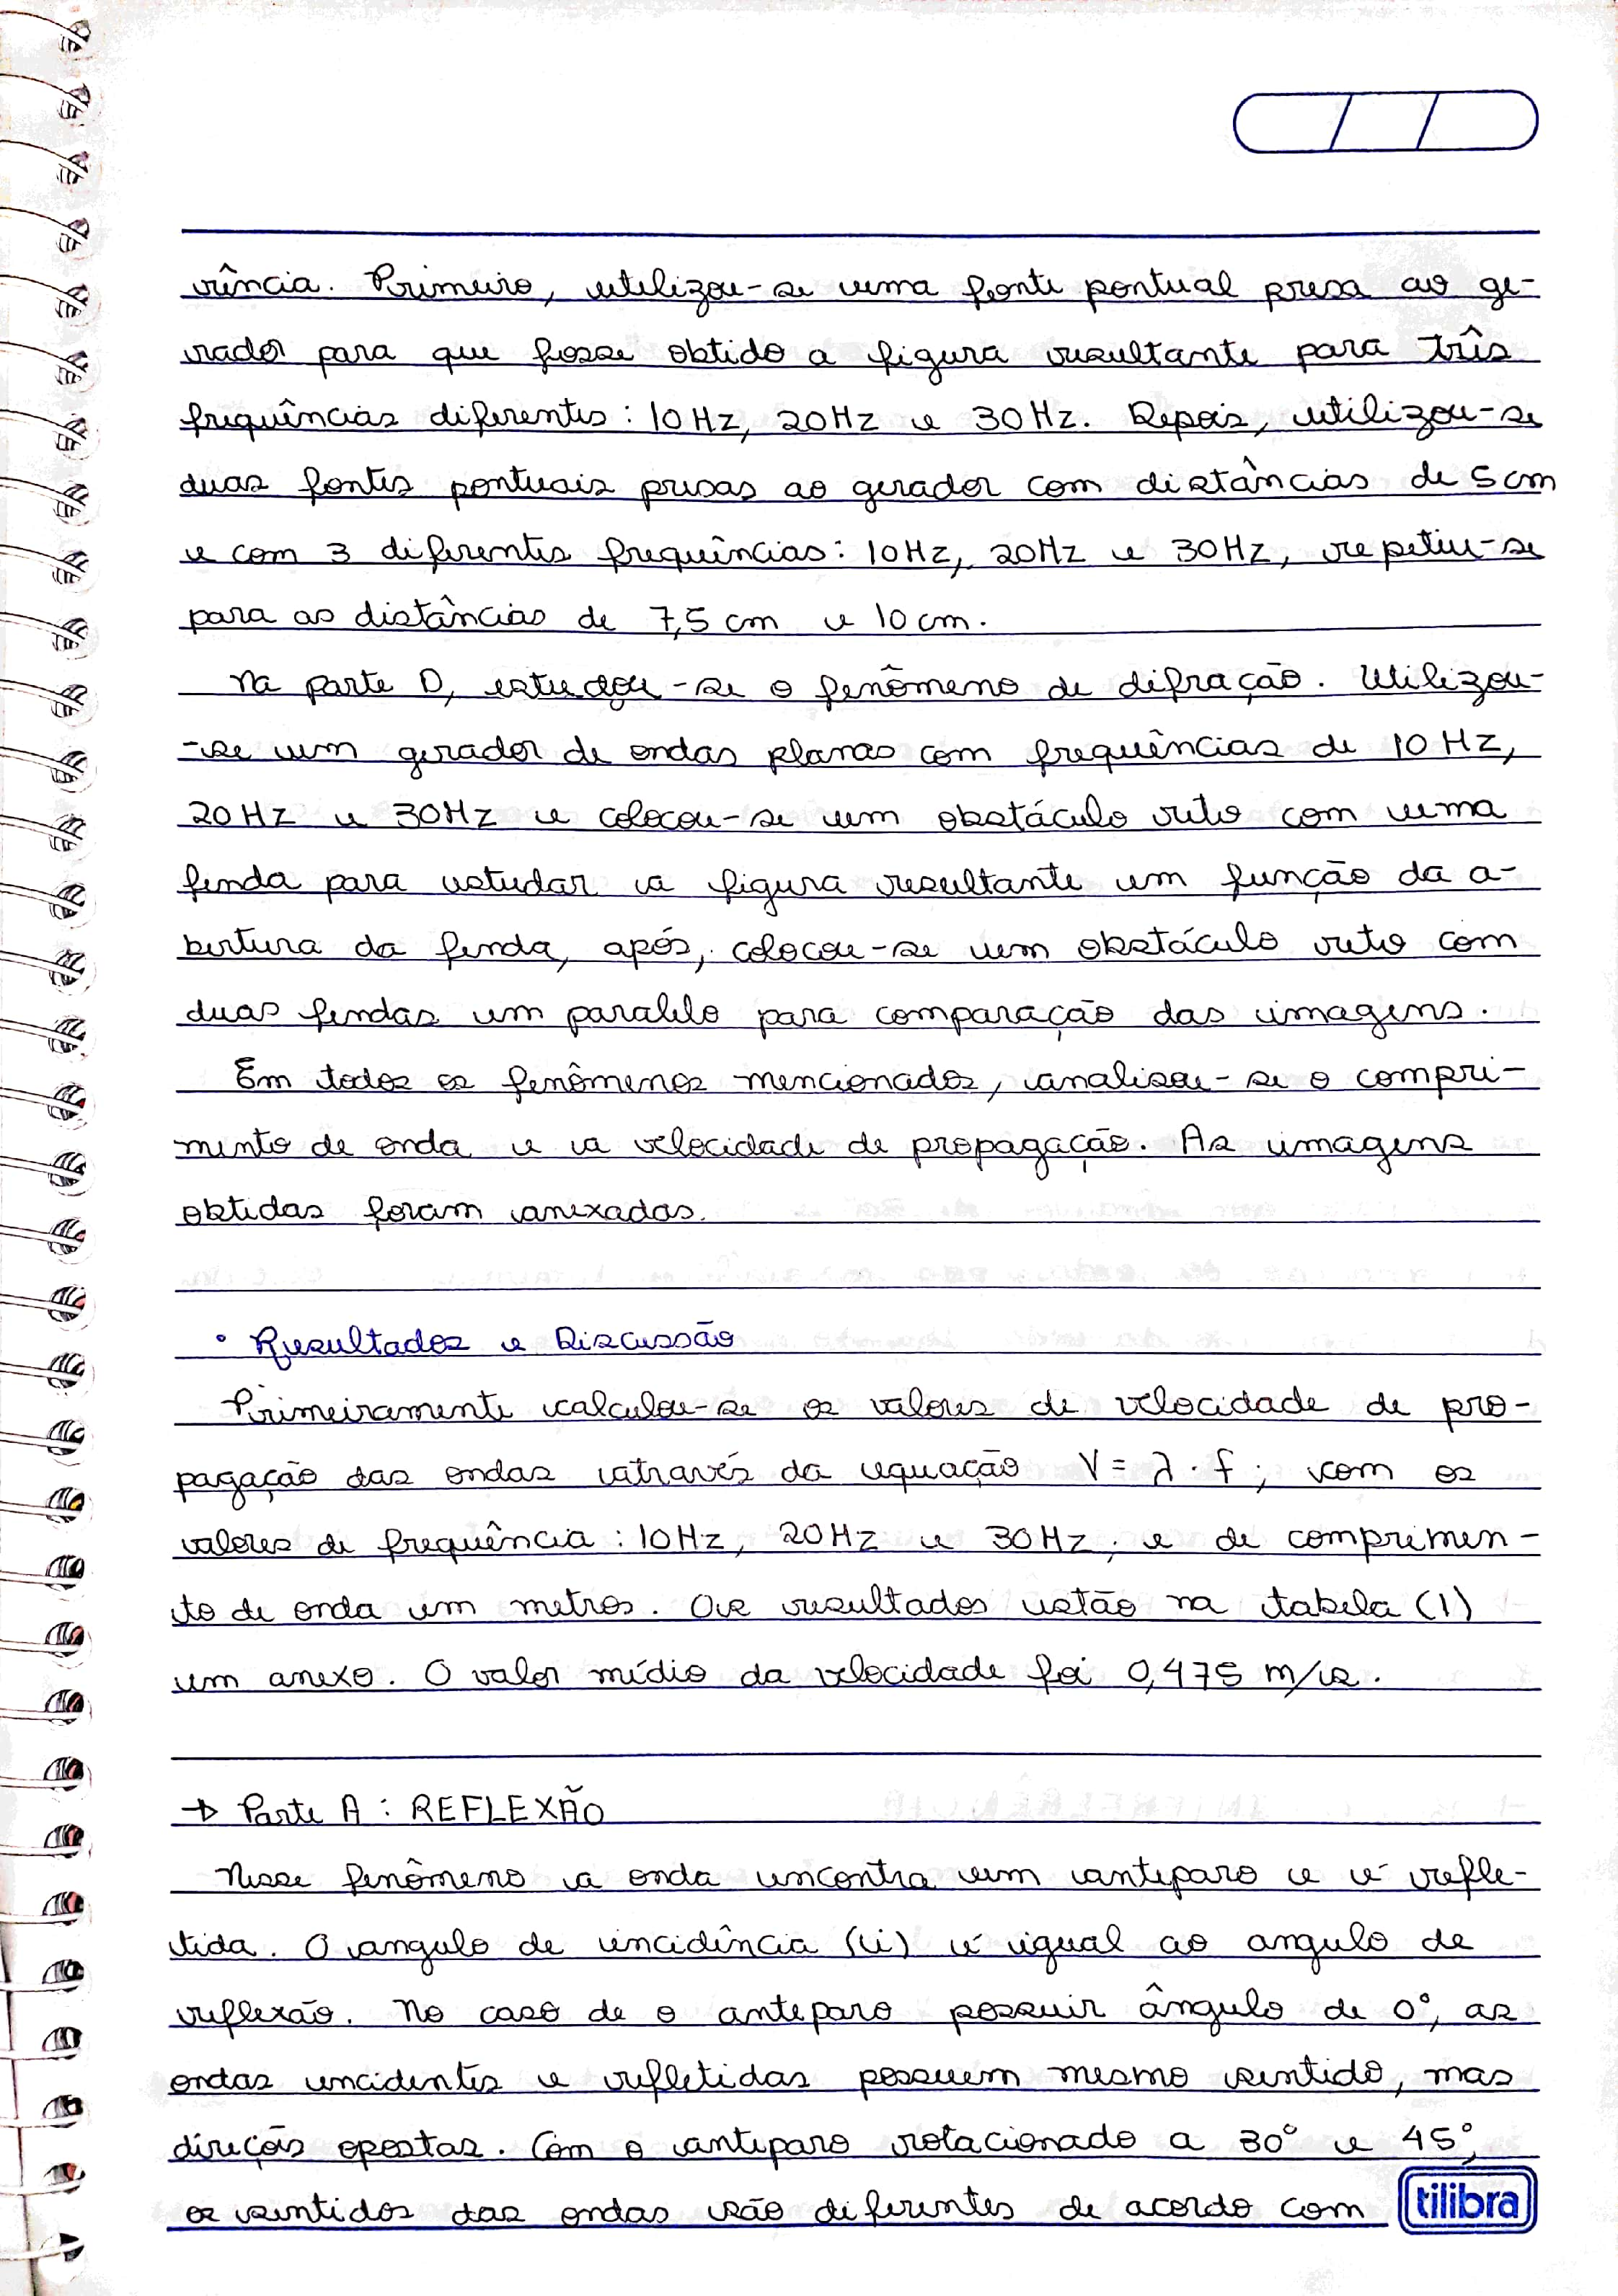 rência. Primeiro, utilizou-se uma fonte pontual presa ao ge-
rador para que fosse obtido a figura resultante para três
frequências diferentes: 10Hz, 20Hz e 30Hz. Depois, utilizou-se
duas fontes pontuais presas ao gerador com distâncias de 5cm
e com 3 diferentes frequências: 10Hz, 20Hz e 30Hz, repetiu-se
para as distâncias de 7,5 cm e 10 cm.
Na parte D, estudou-se o fenômeno de difração. Utilizou-
-se um gerador de ondas planas com frequências de 10 Hz,
20 Hz e 30Hz e colocou-se um obstáculo reto com uma
fenda para estudar a figura resultante em função da a-
bertura da fenda, após, colocou-se um obstáculo reto com
duas fendas em paralelo para comparação das imagens.
Em todos os fenômenos mencionados, analisou-se o compri-
mento de onda e a velocidade de propagação. As imagens
obtidas foram anexadas.
• Resultados e Discussão
Primeiramente calculou-se os valores de velocidade de pro-
pagação das ondas através da equação V = λ · f; com os
valores de frequência: 10Hz, 20Hz e 30Hz; e de comprimen-
to de onda em metros. Os resultados estão na tabela (1)
em anexo. O valor médio da velocidade foi 0,475 m/s.
→ Parte A: REFLEXÃO
Nesse fenômeno a onda encontra um anteparo e é refle-
tida. O angulo de incidência (i) é igual ao angulo de
reflexão. No caso de o anteparo possuir ângulo de 0°, as
ondas incidentes e refletidas possuem mesmo sentido, mas
direções opostas. Com o anteparo rotacionado a 30° e 45°,
os sentidos das ondas são diferentes de acordo com
tilibra